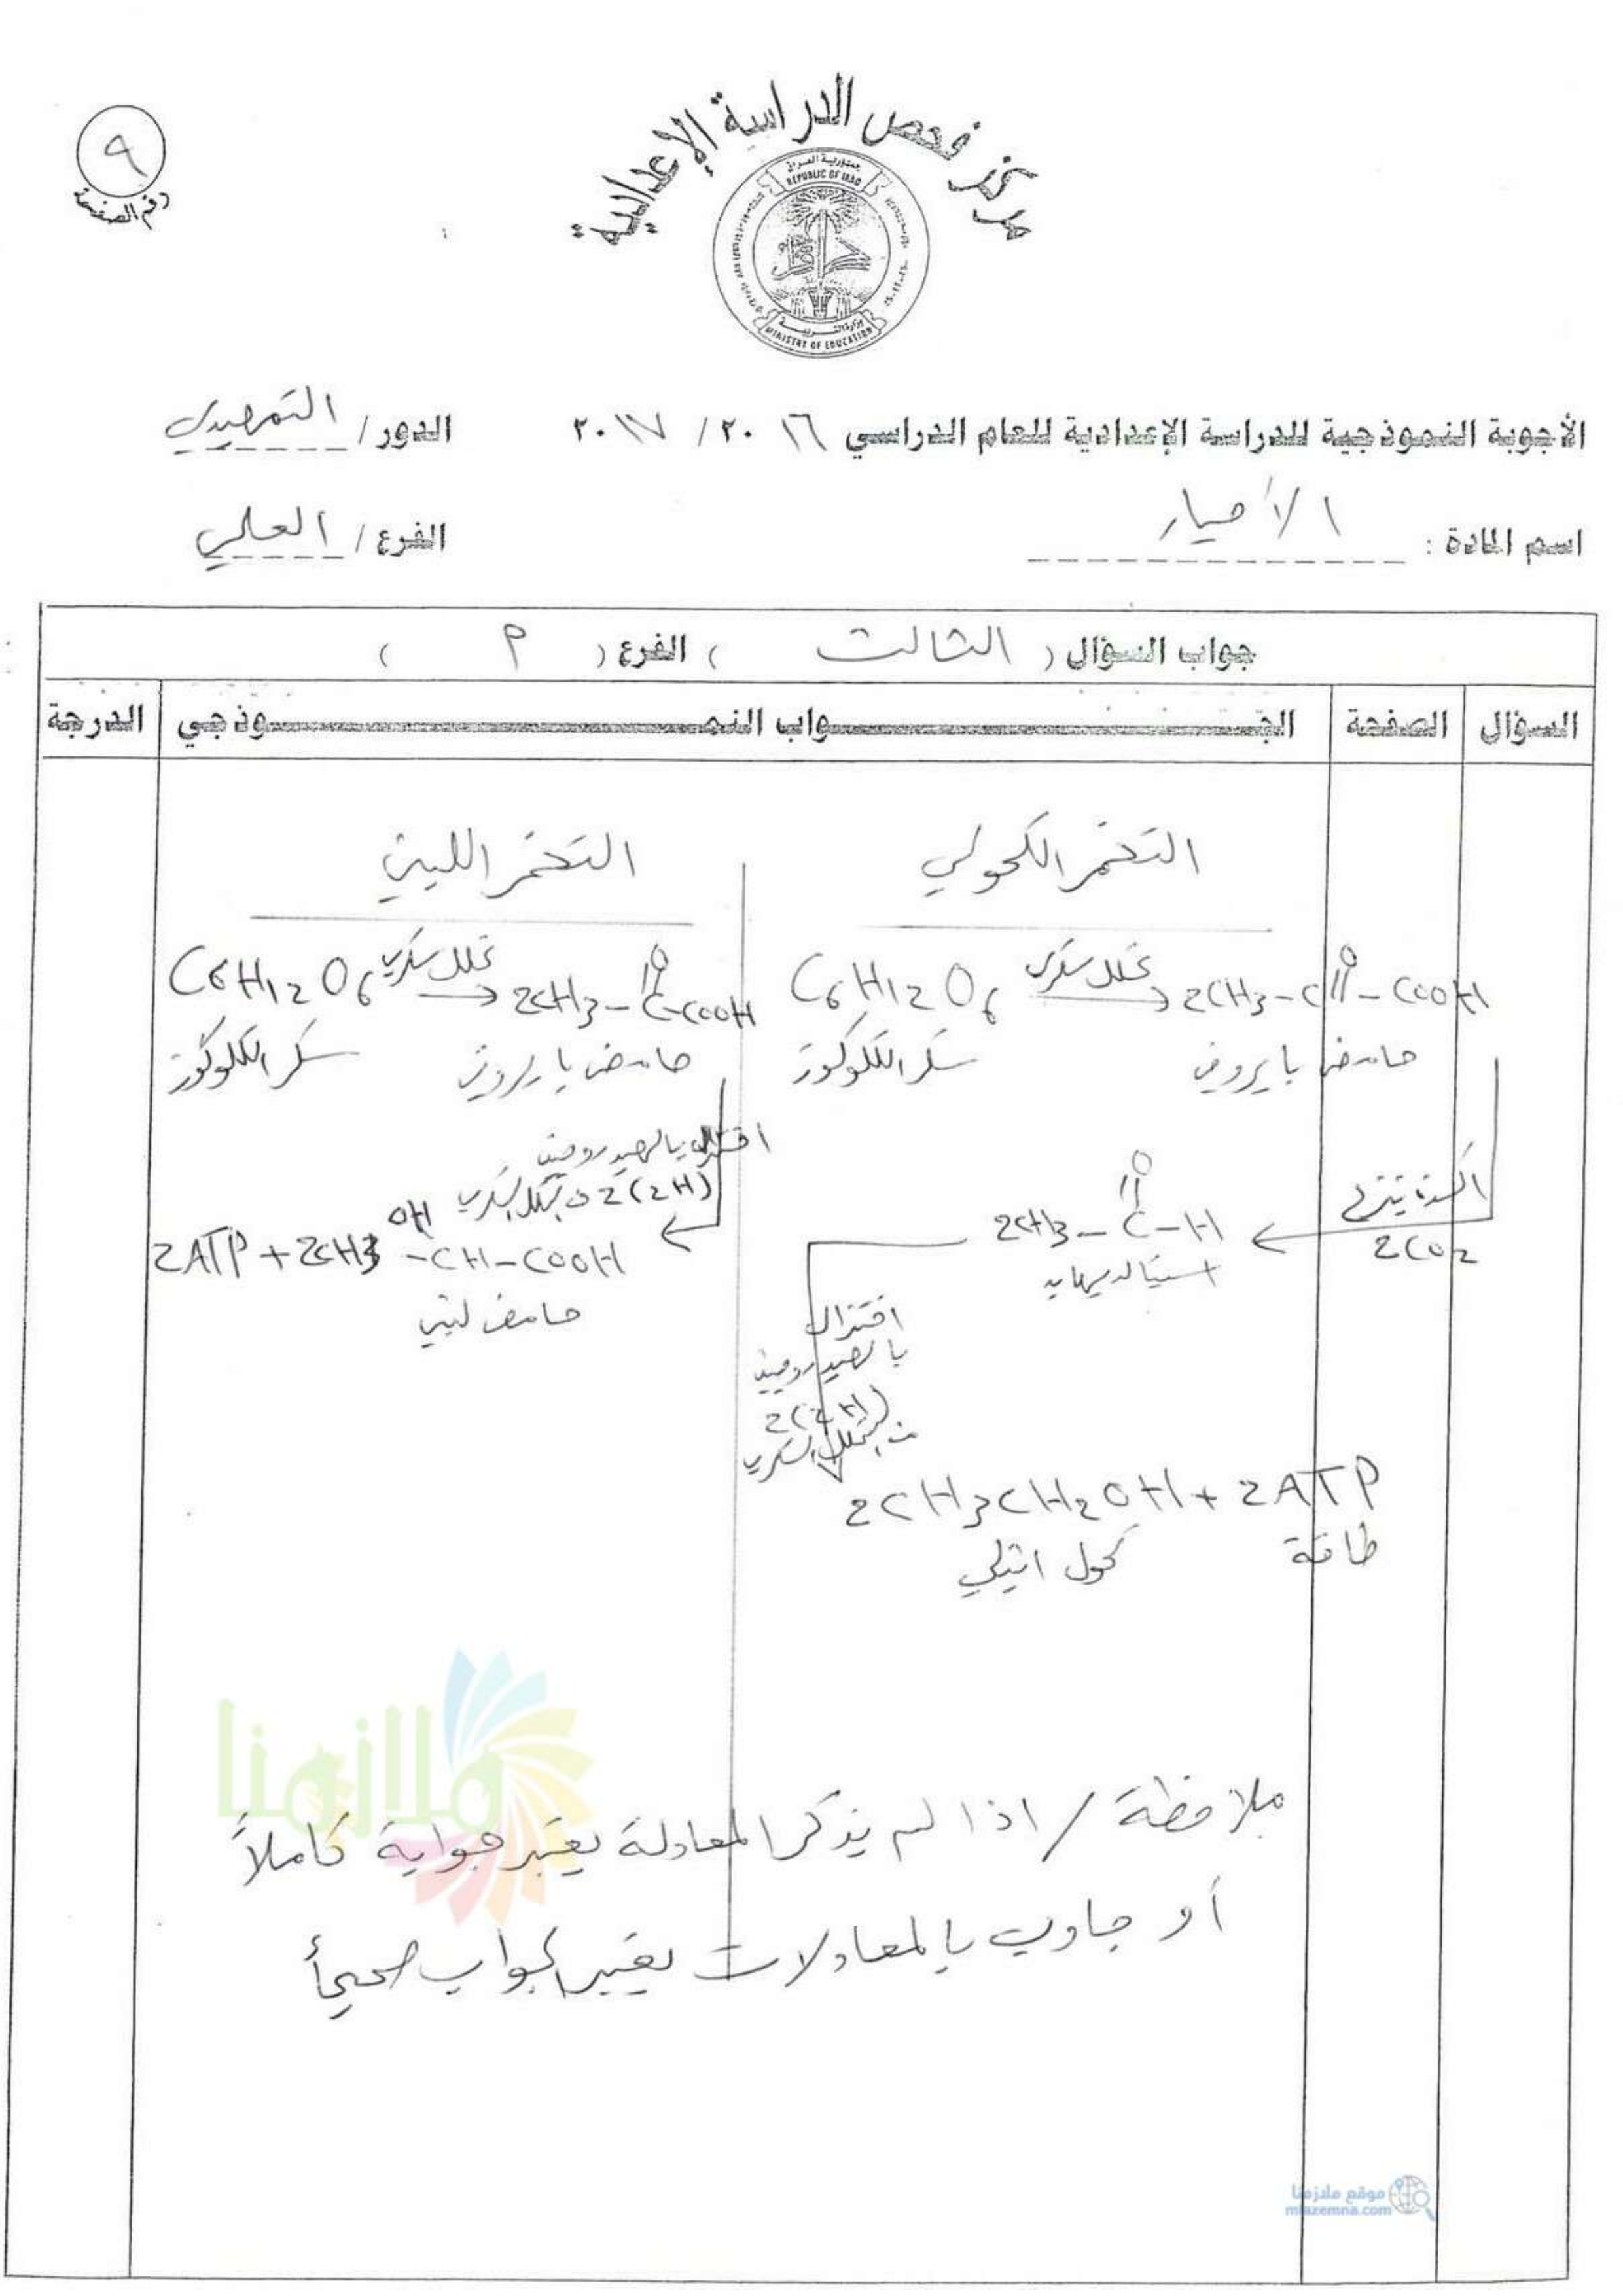 ٩
رقم الصفحة
مركز فحص الدراسة الإعدادية
جمهورية العراق
REPUBLIC OF IRAQ
وزارة التربية
MINISTRY OF EDUCATION
الأجوبة النموذجية للدراسة الإعدادية للعام الدراسي ٢٠١٦ / ٢٠١٧ الدور / التمهيدي
اسم المادة : الأحياء الفرع / العلمي
جواب السؤال ( الثالث ) الفرع ( P )
السؤال الصفحة الجـــواب النمـــوذجي الدرجة
التخمر الكحولي
C6H12O6 تحلل سكري → 2CH3-C-COOH
O
سكر الكلوكوز حامض بايروفي
اكسدة بنزع
2CO2
O
2CH3-C-H
استيالديهايد
اختزال
بالهيدروجين
2(2H)
من التحلل السكري
2CH3CH2OH + 2ATP
كحول اثيلي طاقة
التخمر اللبني
C6H12O6 تحلل سكري → 2CH3-C-COOH
O
سكر الكلوكوز حامض بايروفي
اختزال بالهيدروجين
2(2H) من تحلل سكري
OH
2ATP + 2CH3-CH-COOH
حامض لبني
ملاحظة / اذا لم يذكر المعادلة يعتبر جوابة كاملاً
أو جاوب بالمعادلات يعتبر الجواب صحيحاً
ملازمنا
موقع ملازمنا
mlazemna.com